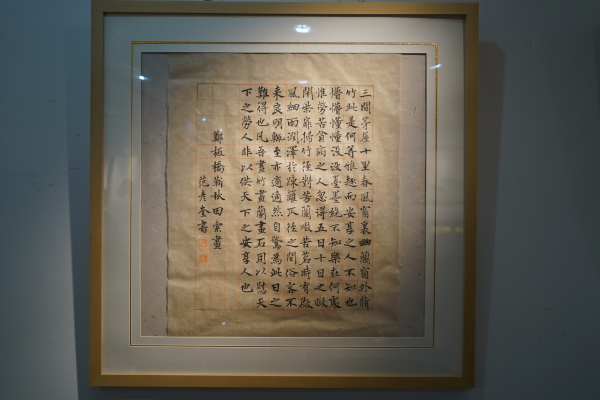 三間茅屋十里春風窗裏幽蘭窗外脩
竹此是何等雅趣而安享之人不知也
懵懵懂懂沒沒墨墨絕不知樂在何處
惟勞苦貧病之人忽得五日十日之暇
閉柴扉掃竹徑對芳蘭啜苦茗時有微
風細雨潤澤於疎籬仄徑之間俗客不
來良朋輒至亦適適然自驚為此日之
難得也凡吾畫竹畫蘭畫石用以慰天
下之勞人非以供天下之安享人也
鄭板橋靳秋田索畫
范彥奎書